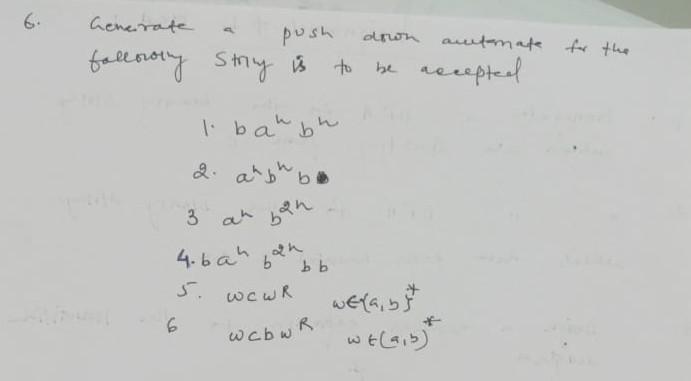 6. Generate a push down automate for the
following String is to be accepted
1. b aⁿ bⁿ
2. aⁿ bⁿ b
3 aⁿ b²ⁿ
4. b aⁿ b²ⁿ bb
5. wcwᴿ w∈{a,b}*
6 wcbwᴿ w∈(a,b)*